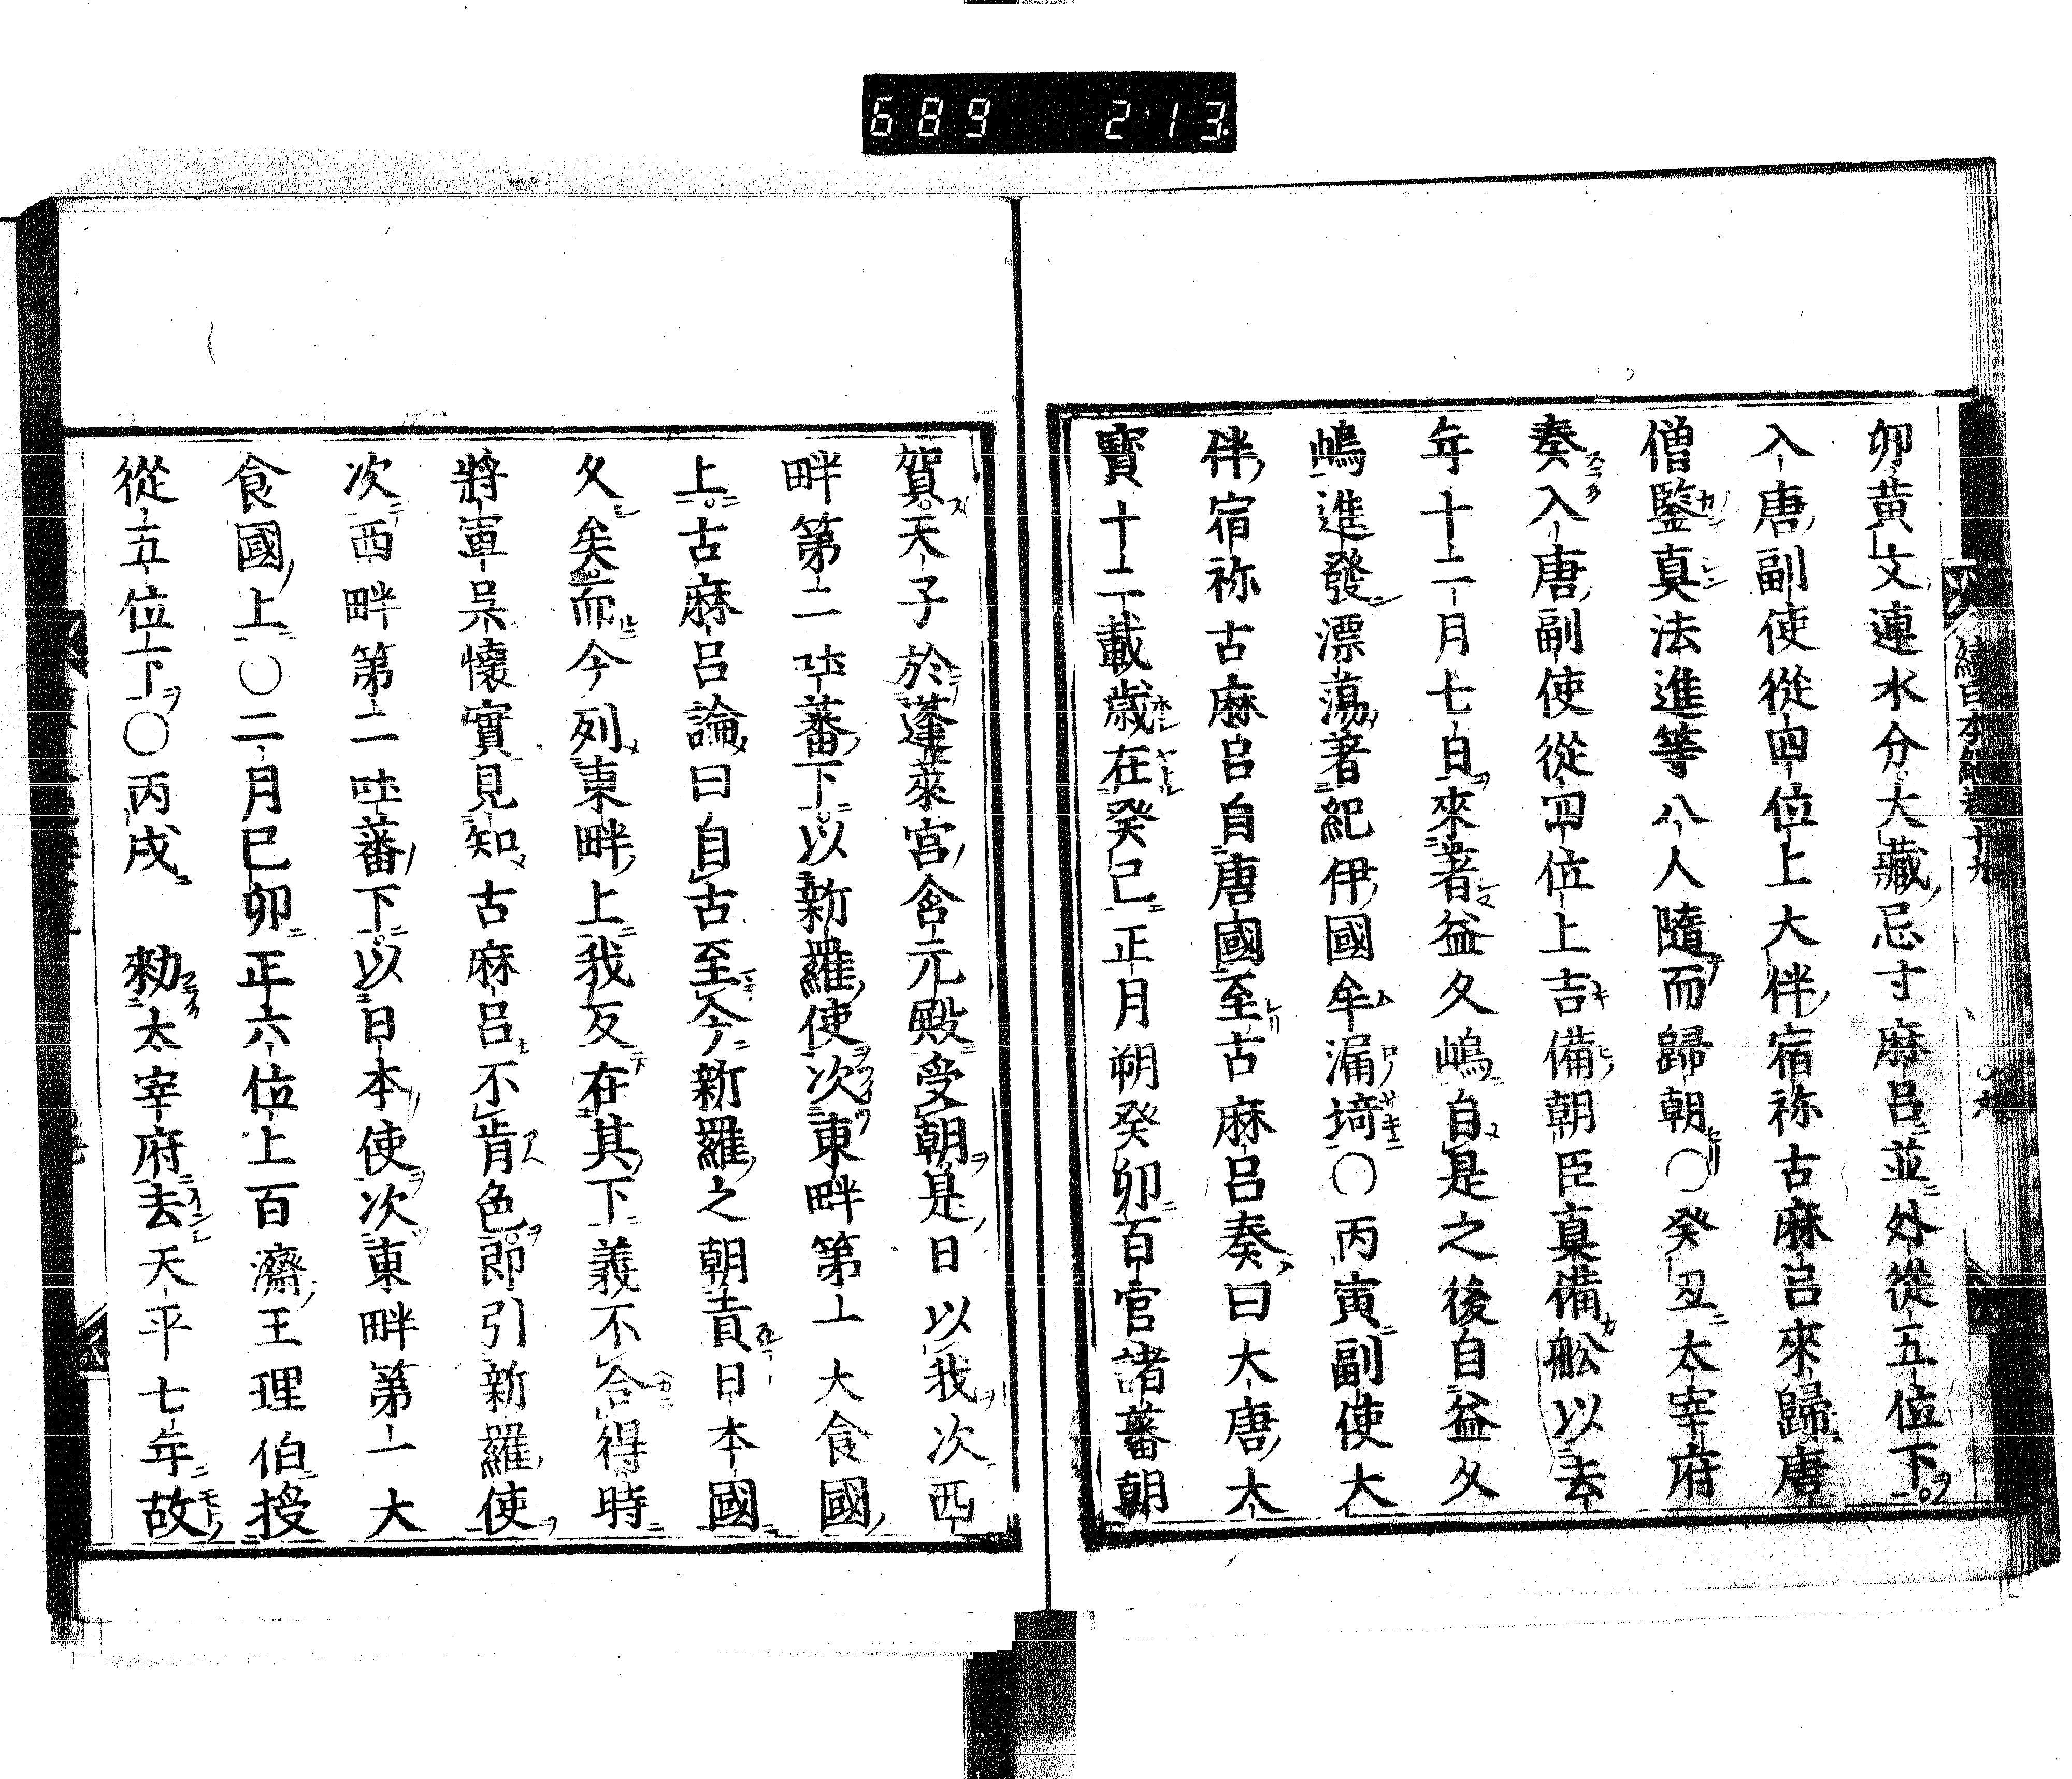 689 2・13
卯黄文連水分大藏忌寸麻呂並外從五位下
入唐副使從四位上大伴宿祢古麻呂來歸唐
僧鑒真法進等八人隨而歸朝〇癸丑太宰府
奏入唐副使從四位上吉備朝臣真備舩以去
年十二月七日來著益久嶋自是之後自益久
嶋進發漂蕩著紀伊國牟漏埼〇丙寅副使大
伴宿祢古麻呂自唐國至古麻呂奏曰大唐大
寶十二載歳在癸巳正月朔癸卯百官諸蕃朝
賀天子於蓬萊宮含元殿受朝是日以我次西
畔第二吐蕃下以新羅使次東畔第一大食國
上古麻呂論曰自古至今新羅之朝貢日本國
久矣而今列東畔上我反在其下義不合得時
將軍吴懐實見知古麻呂不肯色即引新羅使
次西畔第二吐蕃下以日本使次東畔第一大
食國上〇二月巳卯正六位上百濟王理伯授
從五位下〇丙戌 勑太宰府去天平七年故